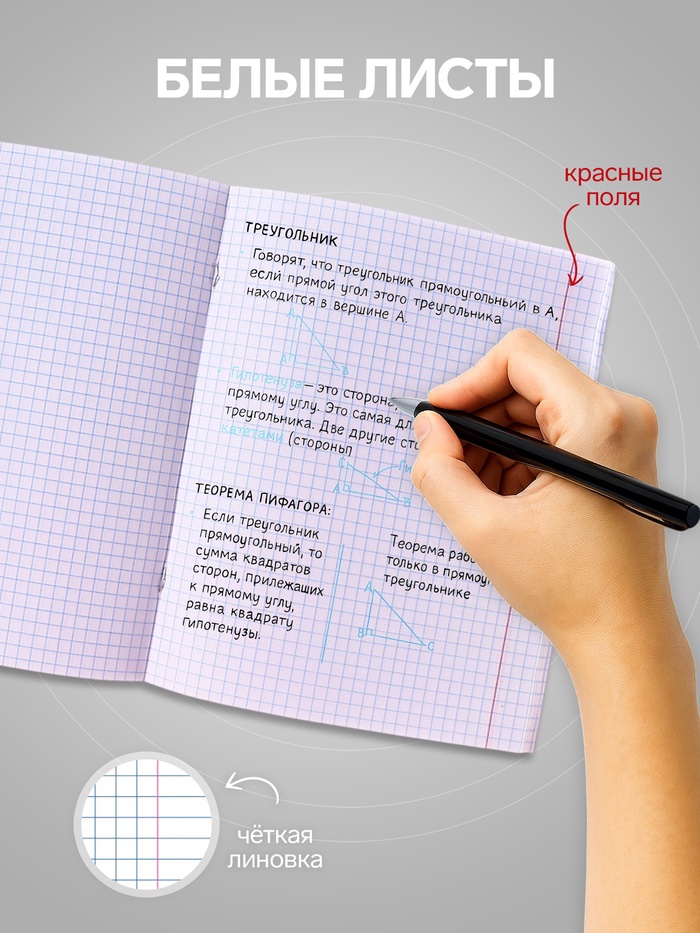 БЕЛЫЕ ЛИСТЫ
красные
поля
ТРЕУГОЛЬНИК
Говорят, что треугольник прямоугольный в А,
если прямой угол этого треугольника
находится в вершине А.
А
А
В
Гипотенуза – это сторона
прямому углу. Это самая
треугольника. Две другие
катетами (стороны
С
А
В
ТЕОРЕМА ПИФАГОРА:
Если треугольник
прямоугольный, то
сумма квадратов
сторон, прилежащих
к прямому углу,
равна квадрату
гипотенузы.
Теорема
только в
треугольнике
А
В
С
чёткая
линовка